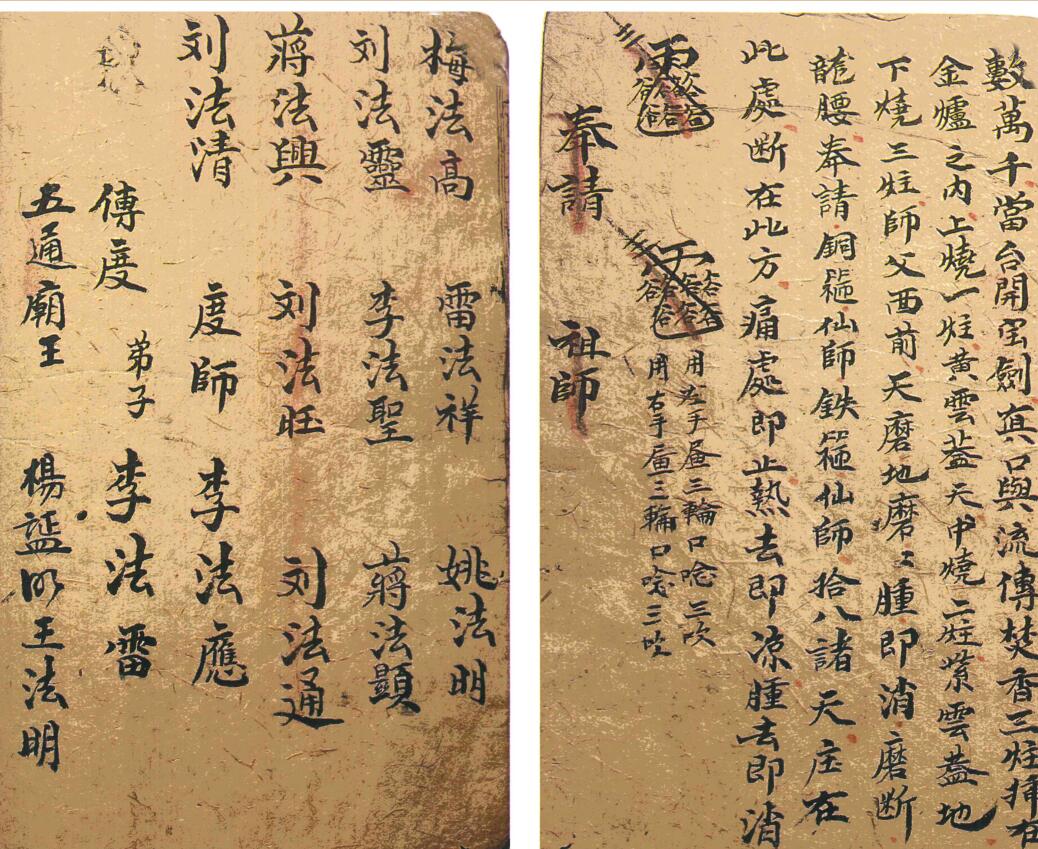 數萬千當台開 劍真口與流傳焚香三炷
金爐之內上燒一炷黃雲蓋天中燒二炷紫雲蓋地
下燒三炷師父西前天磨地磨〻腫即消磨斷
龍腰奉請銅 仙師鉄 仙師拾八諸天庄在
此處断在此方痛處即止熱去即涼腫去即消
用左手 三輪口唸三吹
用右手 三輪口唸三吹
奉請 祖師
梅法高 雷法祥 姚法明
刘法靈 李法聖 蔣法顯
蔣法興 刘法旺 刘法通
刘法清 度師 李法應
傳度 弟子 李法雷
五通廟王 楊 王法明